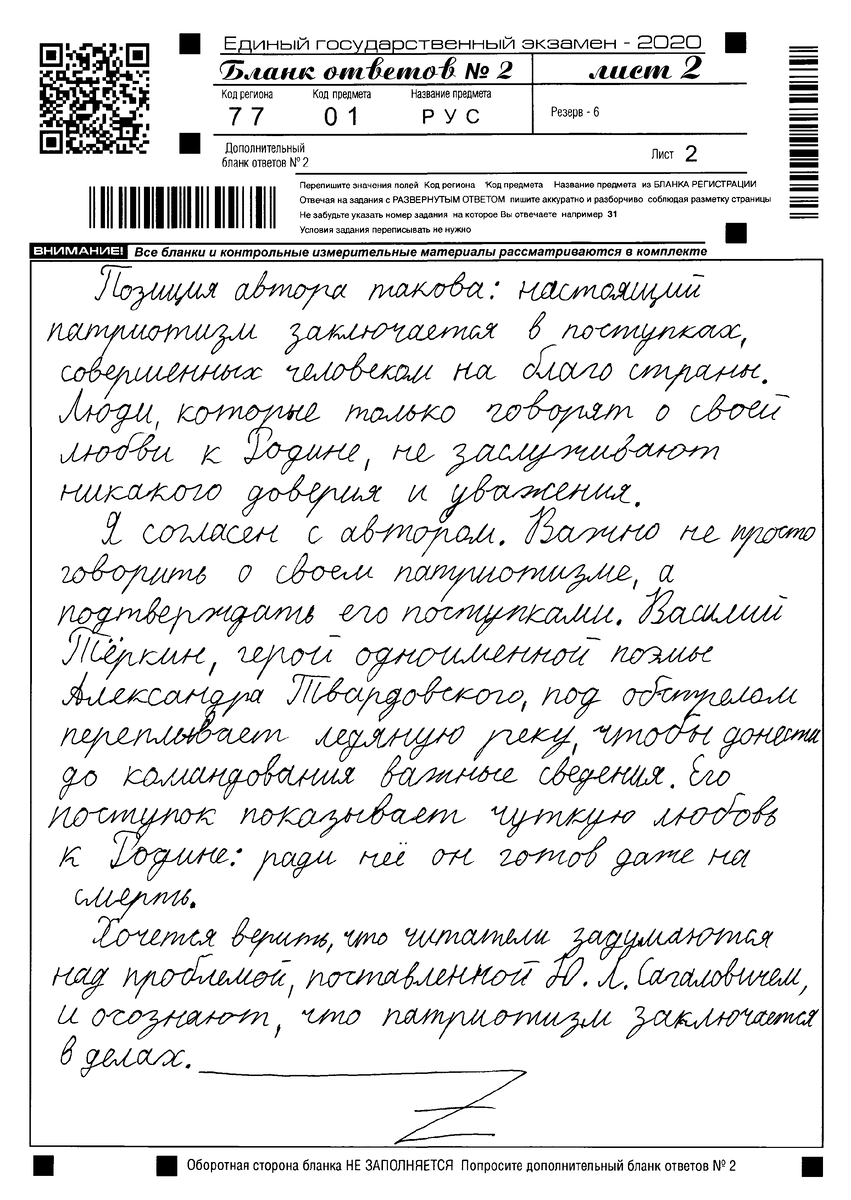 Единый государственный экзамен - 2020
Бланк ответов № 2 лист 2
Код региона Код предмета Название предмета
77 01 РУС Резерв - 6
Дополнительный
бланк ответов № 2 Лист 2
Перепишите значения полей Код региона Код предмета Название предмета из БЛАНКА РЕГИСТРАЦИИ
Отвечая на задания с РАЗВЕРНУТЫМ ОТВЕТОМ пишите аккуратно и разборчиво соблюдая разметку страницы
Не забудьте указать номер задания на которое Вы отвечаете например 31
Условия задания переписывать не нужно
ВНИМАНИЕ! Все бланки и контрольные измерительные материалы рассматриваются в комплекте
Позиция автора такова: настоящий
патриотизм заключается в поступках,
совершенных человеком на благо страны.
Люди, которые только говорят о своей
любви к Родине, не заслуживают
никакого доверия и уважения.
Я согласен с автором. Важно не просто
говорить о своем патриотизме, а
подтверждать его поступками. Василий
Тёркин, герой одноименной поэмы
Александра Твардовского, под обстрелом
переплывает ледяную реку, чтобы донести
до командования важные сведения. Его
поступок показывает чуткую любовь
к Родине: ради неё он готов даже на
смерть.
Хочется верить, что читатели задумаются
над проблемой, поставленной Ю. Л. Сагаловичем,
и осознают, что патриотизм заключается
в делах.
Оборотная сторона бланка НЕ ЗАПОЛНЯЕТСЯ Попросите дополнительный бланк ответов № 2